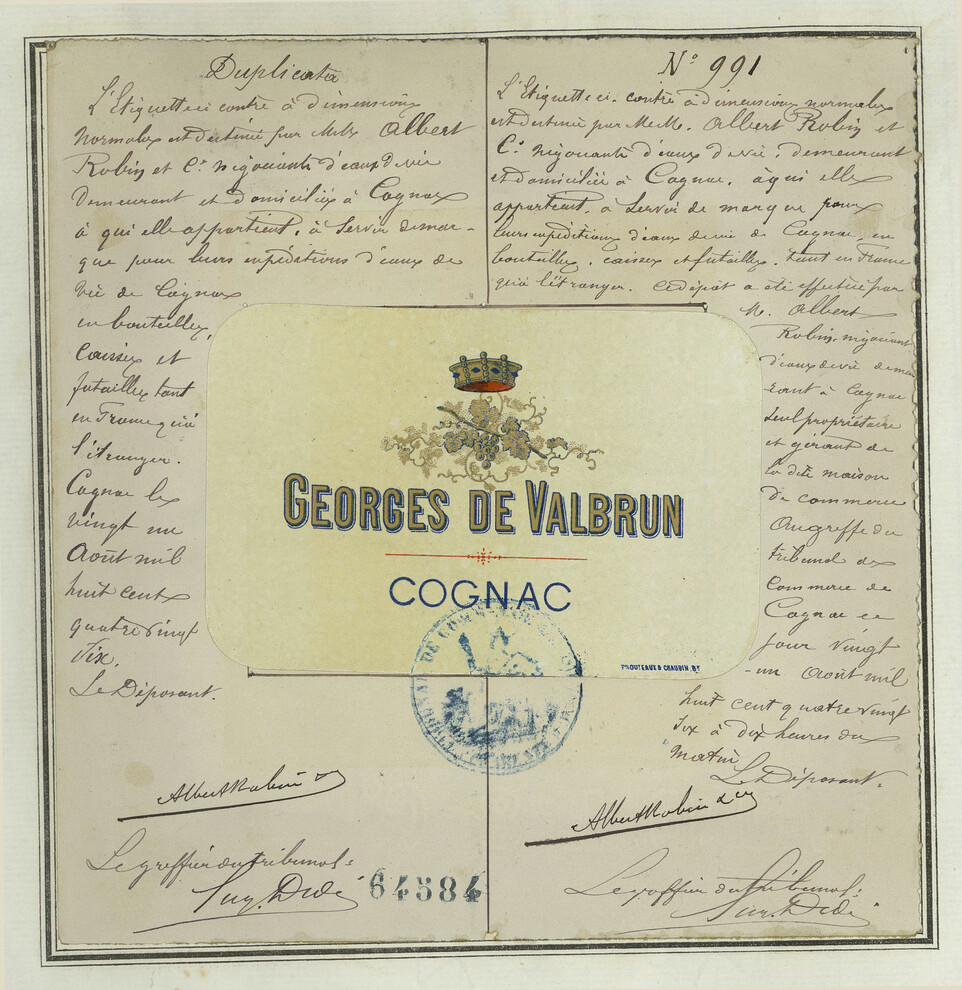 Duplicata
L'Etiquette ci contre à dimensions
normales est destinée par Mrs Albert
Robin et Cie négociants d'eaux de vie
demeurant et domiciliés à Cognac
à qui elle appartient, à servir de mar-
que pour leurs expéditions d'eaux de
vie de Cognac
en bouteilles,
caisses et
futailles tant
en France qu'à
l'étranger.
Cognac le
vingt un
Août mil
huit cent
quatre vingt
six.
Le Déposant.
Albert Robin
Le greffier du tribunal:
64584
N° 991
L'Etiquette ci-contre à dimensions normales
est destinée par MrM. Albert Robin et
Cie négociants d'eaux de vie, demeurant
et domiciliés à Cognac, à qui elle
appartient, à servir de marque pour
leurs expéditions d'eaux de vie de Cognac, en
bouteilles, caisses et futailles, tant en France
qu'à l'étranger. Ce dépôt a été effectué par
M. Albert
Robin, négociant
d'eaux de vie demeu
rant à Cognac
seul propriétaire
et gérant de
la dite maison
de commerce
Au greffe du
tribunal de
Commerce de
Cognac ce
jour vingt
-un Août mil
huit cent quatre vingt
six à dix heures du
matin
Le Déposant.
Albert Robin & Cie
Le greffier du tribunal:
GEORGES DE VALBRUN
COGNAC
PROUTEAUX & CHAUBIN, BY
DE COMMERCE